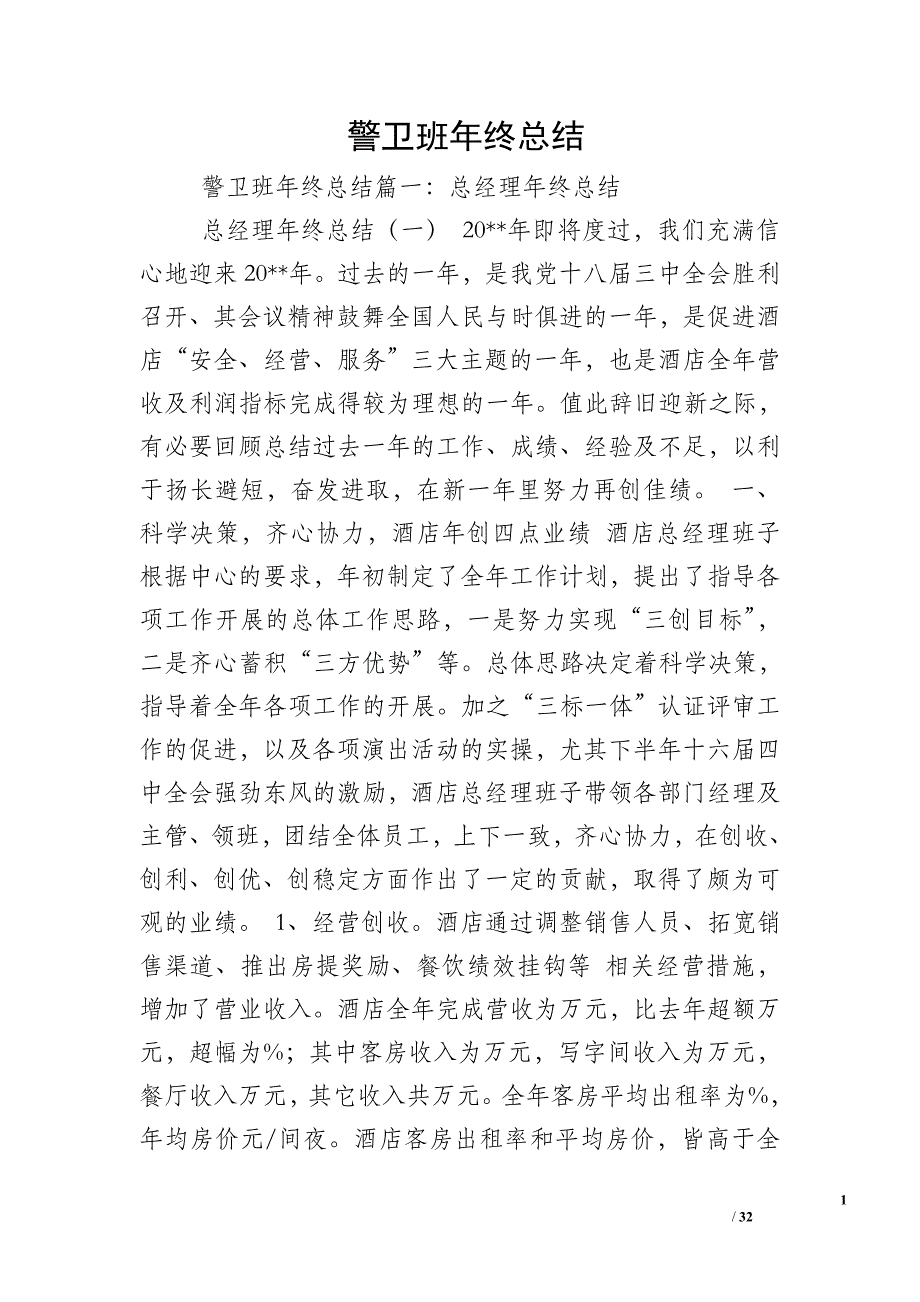 警卫班年终总结
警卫班年终总结篇一：总经理年终总结
总经理年终总结（一） 20**年即将度过，我们充满信
心地迎来20**年。过去的一年，是我党十八届三中全会胜利
召开、其会议精神鼓舞全国人民与时俱进的一年，是促进酒
店“安全、经营、服务”三大主题的一年，也是酒店全年营
收及利润指标完成得较为理想的一年。值此辞旧迎新之际，
有必要回顾总结过去一年的工作、成绩、经验及不足，以利
于扬长避短，奋发进取，在新一年里努力再创佳绩。 一、
科学决策，齐心协力，酒店年创四点业绩 酒店总经理班子
根据中心的要求，年初制定了全年工作计划，提出了指导各
项工作开展的总体工作思路，一是努力实现“三创目标”，
二是齐心蓄积“三方优势”等。总体思路决定着科学决策，
指导着全年各项工作的开展。加之“三标一体”认证评审工
作的促进，以及各项演出活动的实操，尤其下半年十六届四
中全会强劲东风的激励，酒店总经理班子带领各部门经理及
主管、领班，团结全体员工，上下一致，齐心协力，在创收、
创利、创优、创稳定方面作出了一定的贡献，取得了颇为可
观的业绩。 1、经营创收。酒店通过调整销售人员、拓宽销
售渠道、推出房提奖励、餐饮绩效挂钩等 相关经营措施，
增加了营业收入。酒店全年完成营收为万元，比去年超额万
元，超幅为%；其中客房收入为万元，写字间收入为万元，
餐厅收入万元，其它收入共万元。全年客房平均出租率为%，
年均房价元/间夜。酒店客房出租率和平均房价，皆高于全
1
/ 32